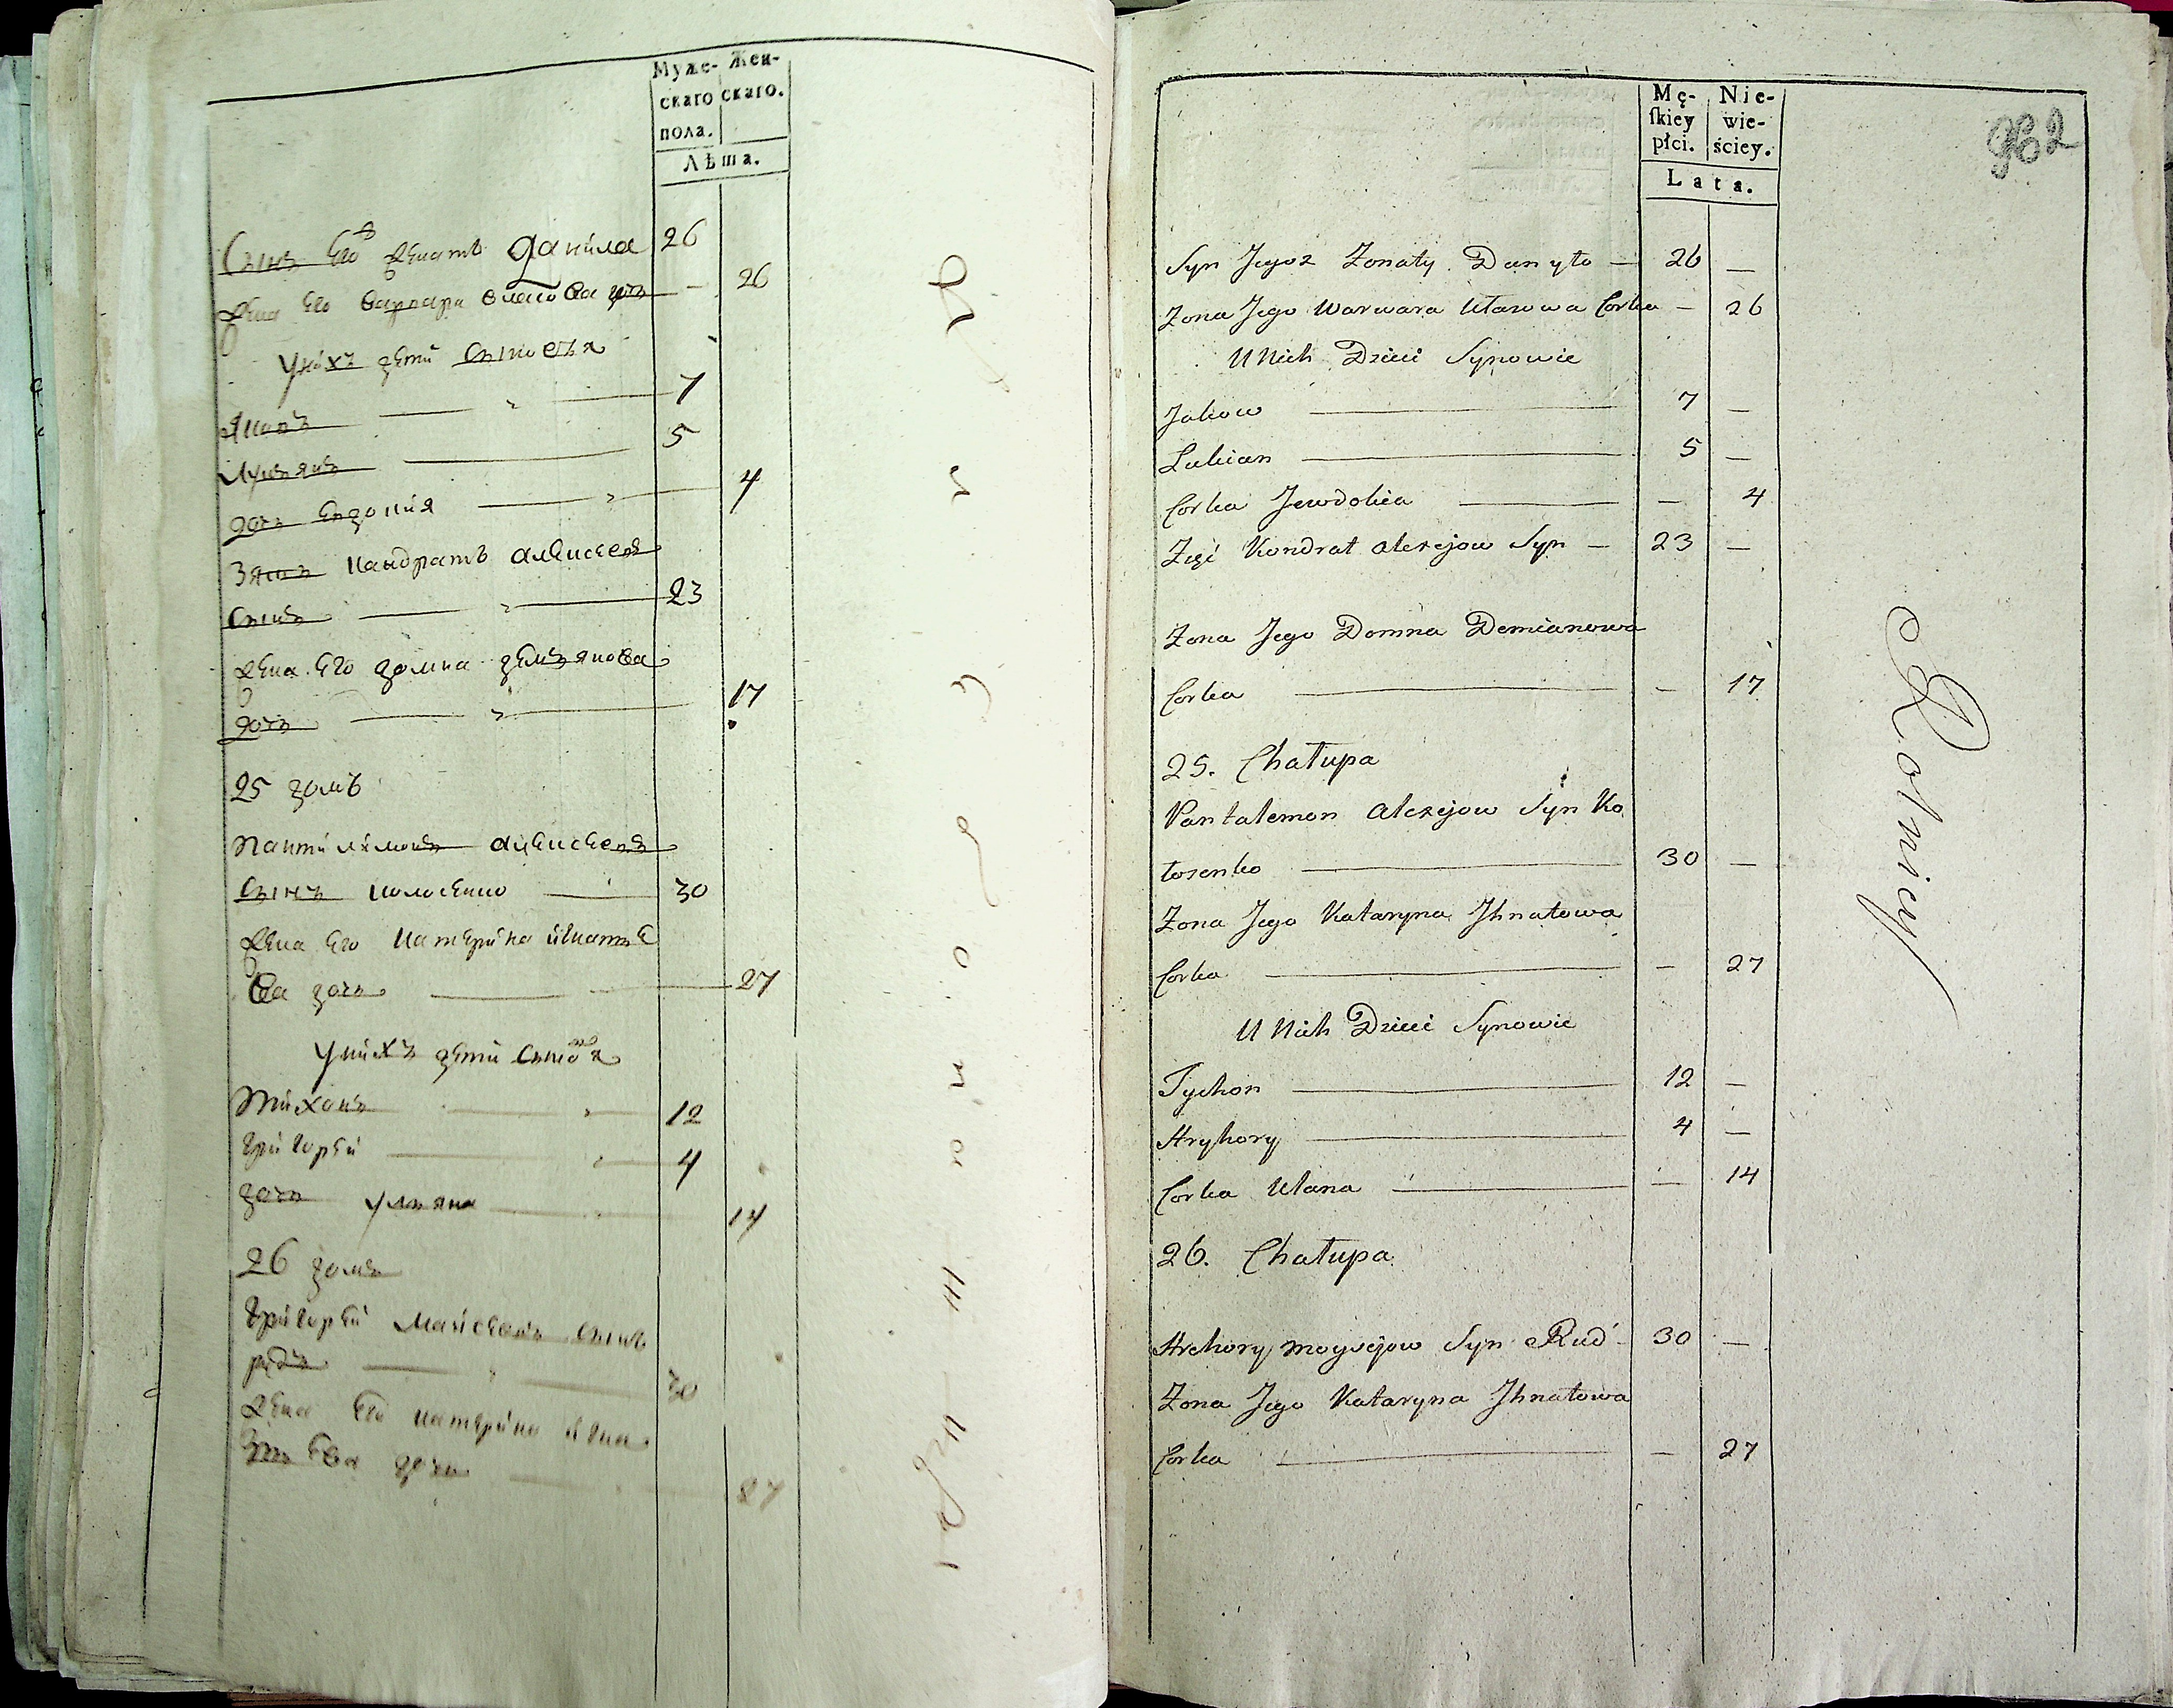 Муже- Жен-
скаго скаго.
пола.
Лѣта.
Сынъ Его женатъ Данила 26
жена Его варвара власова дочь — 26
У нихъ дети Сыновья
Яковъ 7
Лукьянъ 5
дочь Евдокия 4
Зять Кандратъ алексеевъ
Сынъ 23
жена Его домна демьянова
дочь 17
25 домъ
Пантилимонъ алексеевъ
Сынъ колосенко 30
жена Его Катерина игнатье
ва дочь 27
У нихъ дети Сыновья
Тихонъ 12
григорей 4
дочь Ульяна 14
26 домъ
григорей Мойсеевъ Сынъ
рудь 30
жена Его катерина игна
тьева дочь 27
Mę- Nie-
ſkiey wie-
płci. ściey.
Lata.
362
Syn Jegoż Żonaty Danyło — 26 —
Żona Jego Warwara Ułasowa Corka — 26
U Nich Dzieci Synowie
Jakow 7 —
Łukian 5 —
Corka Jewdokia — 4
Zięć Kondrat Alexejow Syn — 23 —
Żona Jego Domna Demianowa
Corka — 17
25. Chałupa
Pantalemon Alexejow Syn Ko
łosenko 30 —
Żona Jego Kataryna Jhnatowa
Corka — 27
U Nich Dzieci Synowie
Tychon 12 —
Hryhory 4 —
Corka Ulana — 14
26. Chałupa
Hrehory Moysejow Syn Rud' 30 —
Żona Jego Kataryna Jhnatowa
Corka — 27
Rolnicy